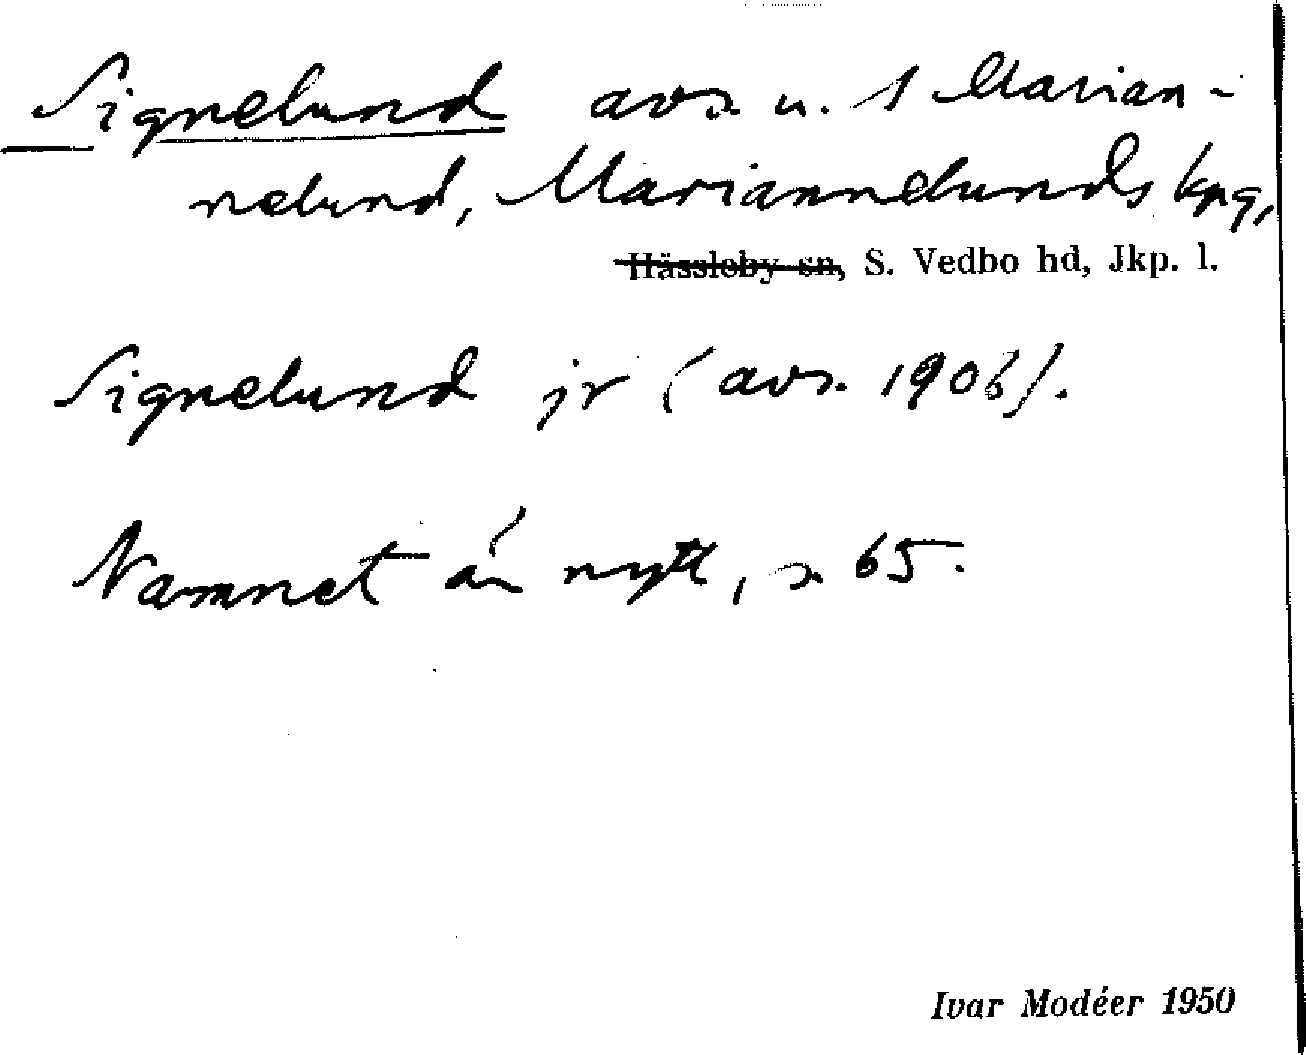 Signelund avs. u. 1 Marian-
nelund, Mariannelunds kpg,
Hässleby sn, S. Vedbo hd, Jkp. l.
Signelund jr (avs. 1906).
Namnet är nytt, s. 65.
Ivar Modéer 1950